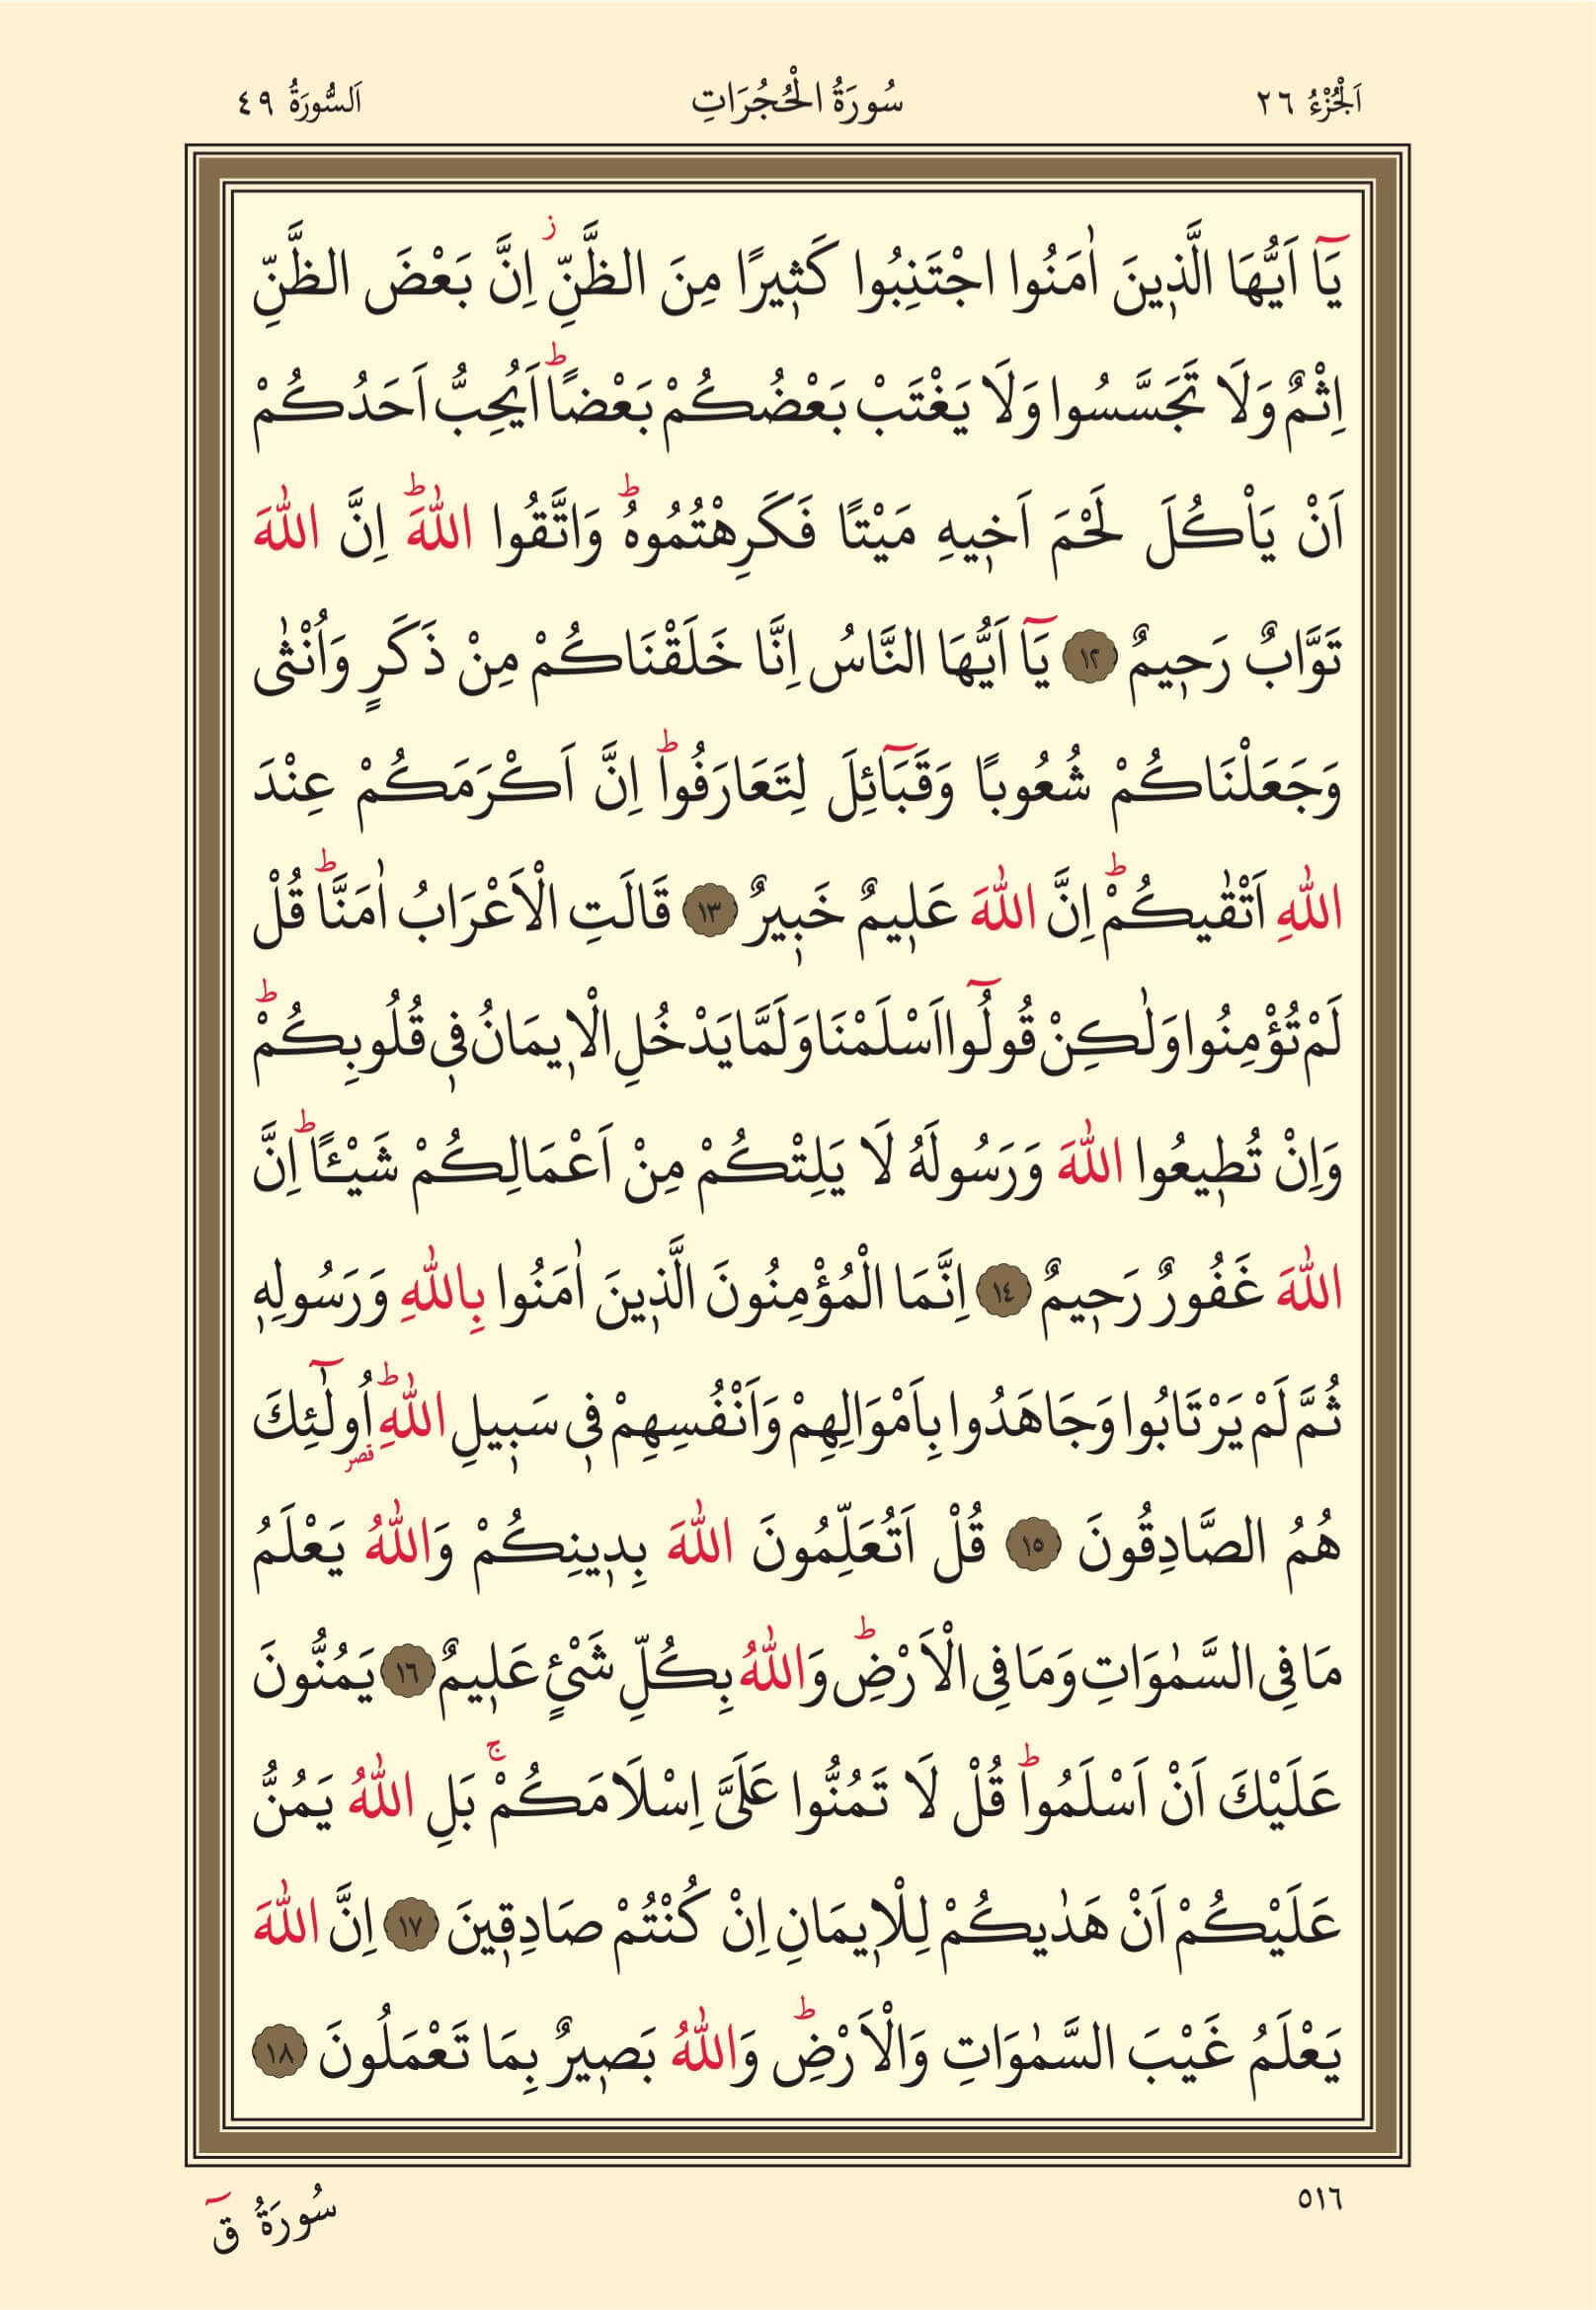 اَلْجُزْءُ ٢٦
سُورَةُ الْحُجُرَاتِ
اَلسُّورَةُ ٤٩
يَٓا اَيُّهَا الَّذ۪ينَ اٰمَنُوا اجْتَنِبُوا كَث۪يرًا مِنَ الظَّنِّۘ اِنَّ بَعْضَ الظَّنِّ
اِثْمٌ وَلَا تَجَسَّسُوا وَلَا يَغْتَبْ بَعْضُكُمْ بَعْضًاؕ اَيُحِبُّ اَحَدُكُمْ
اَنْ يَاْكُلَ لَحْمَ اَخ۪يهِ مَيْتًا فَكَرِهْتُمُوهُؕ وَاتَّقُوا اللّٰهَؕ اِنَّ اللّٰهَ
تَوَّابٌ رَح۪يمٌ ﴿١٢﴾ يَٓا اَيُّهَا النَّاسُ اِنَّا خَلَقْنَاكُمْ مِنْ ذَكَرٍ وَاُنْثٰى
وَجَعَلْنَاكُمْ شُعُوبًا وَقَبَٓائِلَ لِتَعَارَفُواؕ اِنَّ اَكْرَمَكُمْ عِنْدَ
اللّٰهِ اَتْقٰيكُمْؕ اِنَّ اللّٰهَ عَل۪يمٌ خَب۪يرٌ ﴿١٣﴾ قَالَتِ الْاَعْرَابُ اٰمَنَّاؕ قُلْ
لَمْ تُؤْمِنُوا وَلٰكِنْ قُولُٓوا اَسْلَمْنَا وَلَمَّا يَدْخُلِ الْا۪يمَانُ ف۪ي قُلُوبِكُمْؕ
وَاِنْ تُط۪يعُوا اللّٰهَ وَرَسُولَهُ لَا يَلِتْكُمْ مِنْ اَعْمَالِكُمْ شَيْـًٔاؕ اِنَّ
اللّٰهَ غَفُورٌ رَح۪يمٌ ﴿١٤﴾ اِنَّمَا الْمُؤْمِنُونَ الَّذ۪ينَ اٰمَنُوا بِاللّٰهِ وَرَسُولِه۪
ثُمَّ لَمْ يَرْتَابُوا وَجَاهَدُوا بِاَمْوَالِهِمْ وَاَنْفُسِهِمْ ف۪ي سَب۪يلِ اللّٰهِؕ اُولٰٓئِكَ
قصر
هُمُ الصَّادِقُونَ ﴿١٥﴾ قُلْ اَتُعَلِّمُونَ اللّٰهَ بِد۪ينِكُمْ وَاللّٰهُ يَعْلَمُ
مَا فِي السَّمٰوَاتِ وَمَا فِي الْاَرْضِؕ وَاللّٰهُ بِكُلِّ شَيْءٍ عَل۪يمٌ ﴿١٦﴾ يَمُنُّونَ
عَلَيْكَ اَنْ اَسْلَمُواؕ قُلْ لَا تَمُنُّوا عَلَيَّ اِسْلَامَكُمْۚ بَلِ اللّٰهُ يَمُنُّ
عَلَيْكُمْ اَنْ هَدٰيكُمْ لِلْا۪يمَانِ اِنْ كُنْتُمْ صَادِق۪ينَ ﴿١٧﴾ اِنَّ اللّٰهَ
يَعْلَمُ غَيْبَ السَّمٰوَاتِ وَالْاَرْضِؕ وَاللّٰهُ بَص۪يرٌ بِمَا تَعْمَلُونَ ﴿١٨﴾
٥١٦
سُورَةُ قٓ